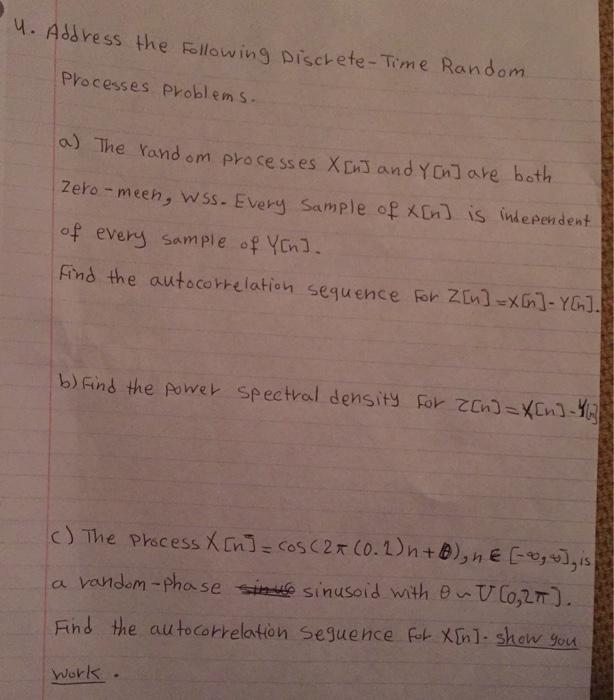 4. Address the Following Discrete-Time Random
Processes Problems.
a) The random processes X[n] and Y[n] are both
Zero-meen, WSS. Every Sample of X[n] is independent
of every sample of Y[n].
Find the autocorrelation sequence For Z[n]=X[n]-Y[n].
b) Find the Power Spectral density For Z[n]=X[n]-Y[n]
c) The Process X[n] = cos(2π(0.1)n+θ), n ∈ [-∞,∞], is
a random-phase sinusoid with θ ~ U[0,2π].
Find the autocorrelation Sequence For X[n]. show you
work.